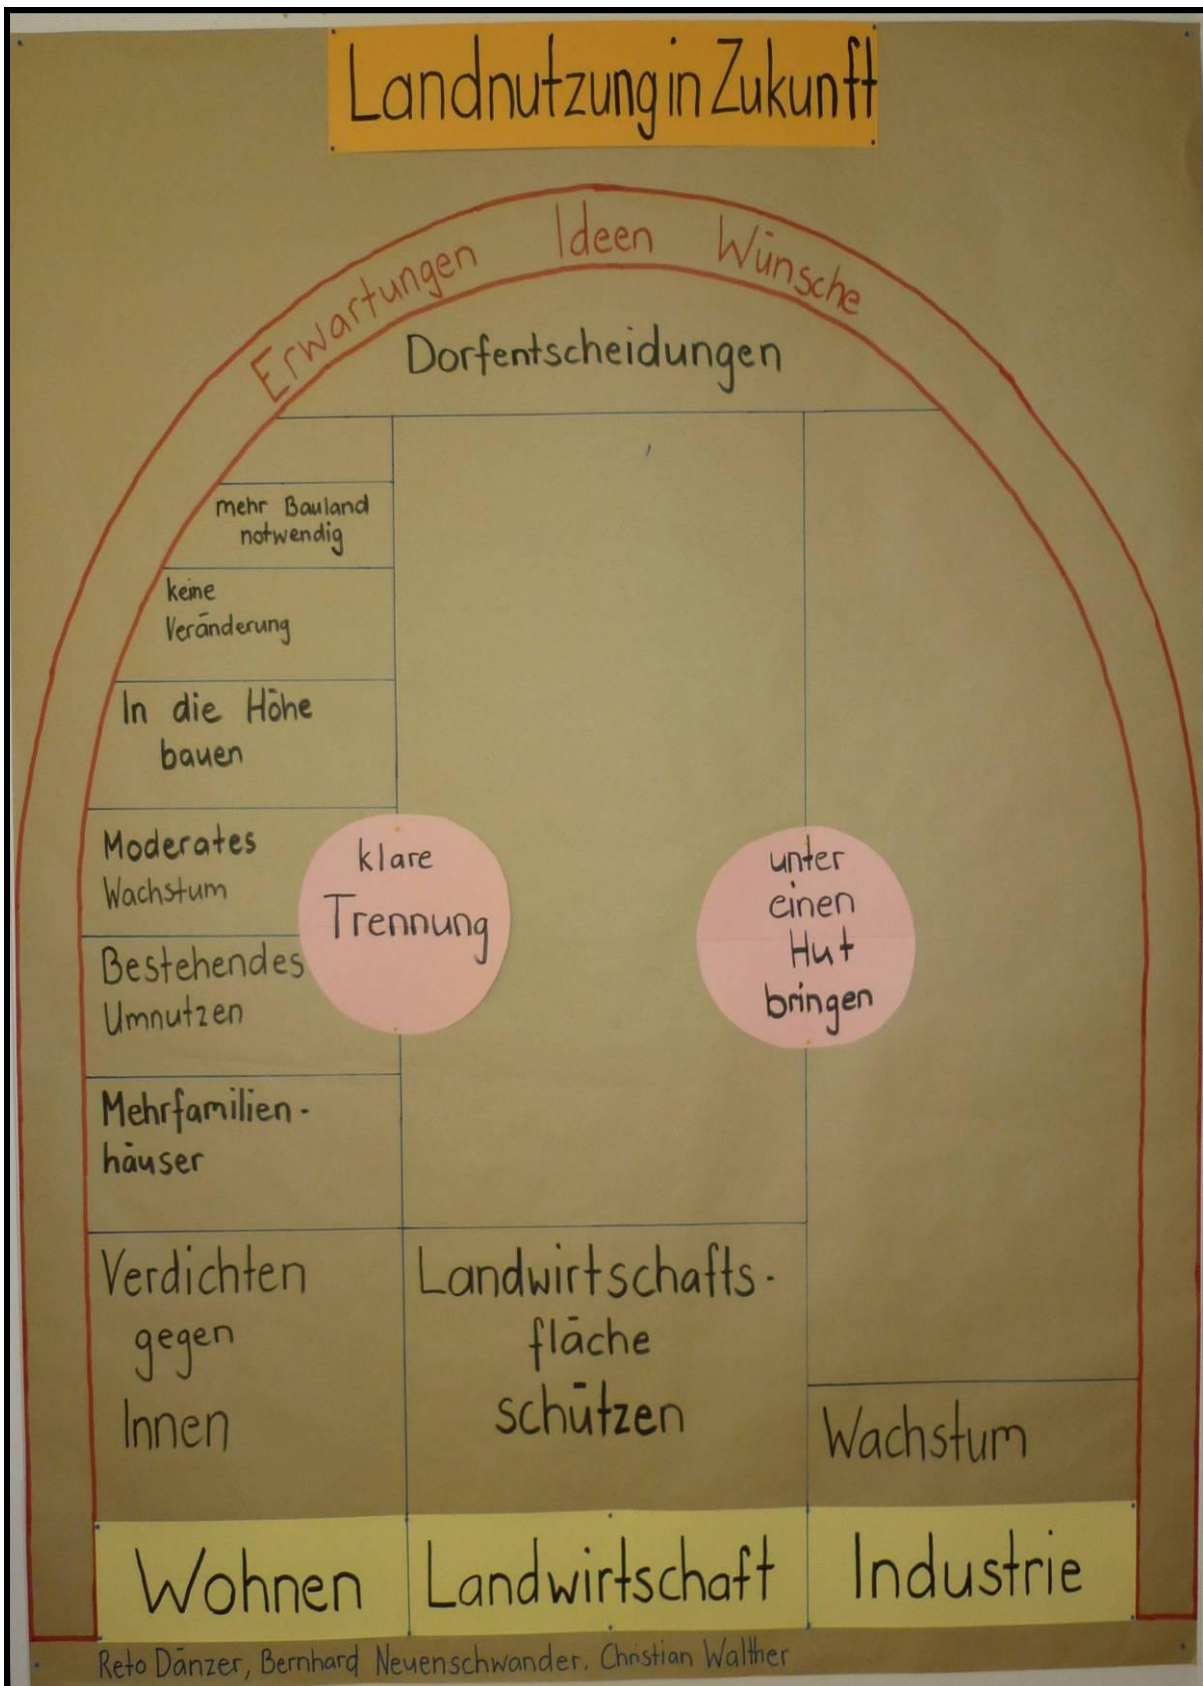 Landnutzung in Zukunft
Erwartungen Ideen Wünsche
Dorfentscheidungen
mehr Bauland
notwendig
keine
Veränderung
In die Höhe
bauen
Moderates
Wachstum
Bestehendes
Umnutzen
Mehrfamilien-
häuser
Verdichten
gegen
Innen
klare
Trennung
Landwirtschafts-
fläche
schützen
unter
einen
Hut
bringen
Wachstum
Wohnen
Landwirtschaft
Industrie
Reto Dänzer, Bernhard Neuenschwander. Christian Walther